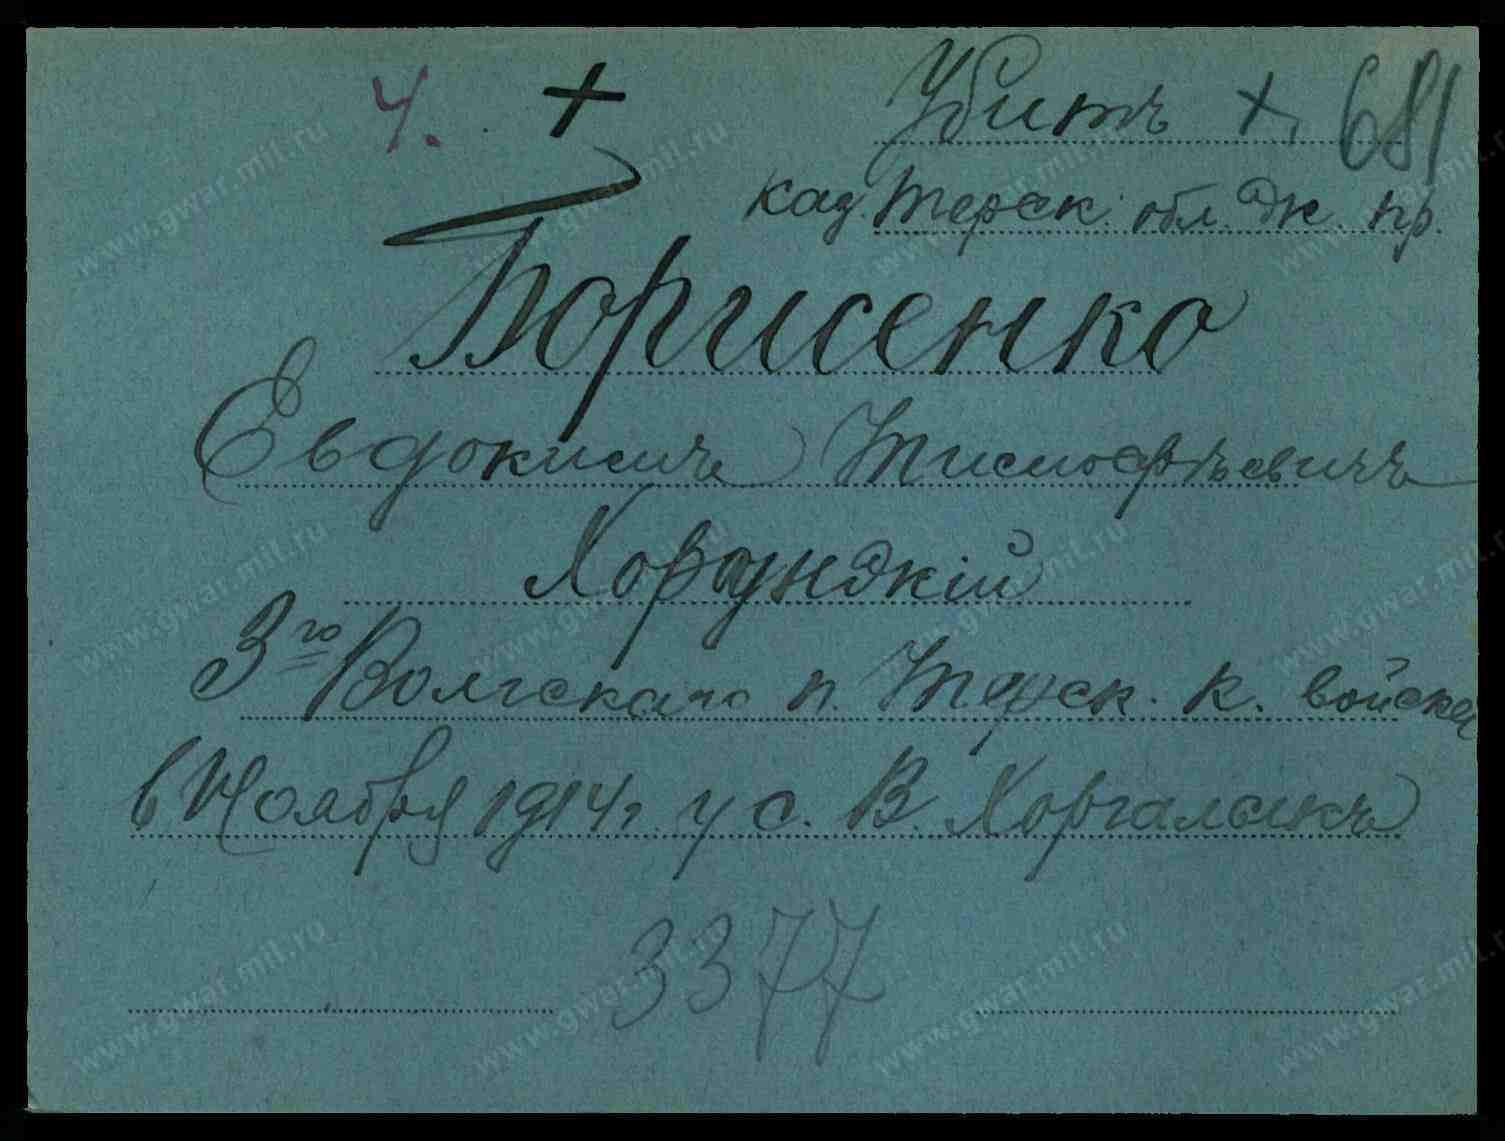 У. + Убитъ + 681
каз. Терск. обл. пр.
Борисенко
Евдокимъ Тимофѣевичъ
Хорунжій
3го Волгскаго п. Терск. к. войска
в Ноября 1914 г. у с. В. Хоргалыкъ
3377